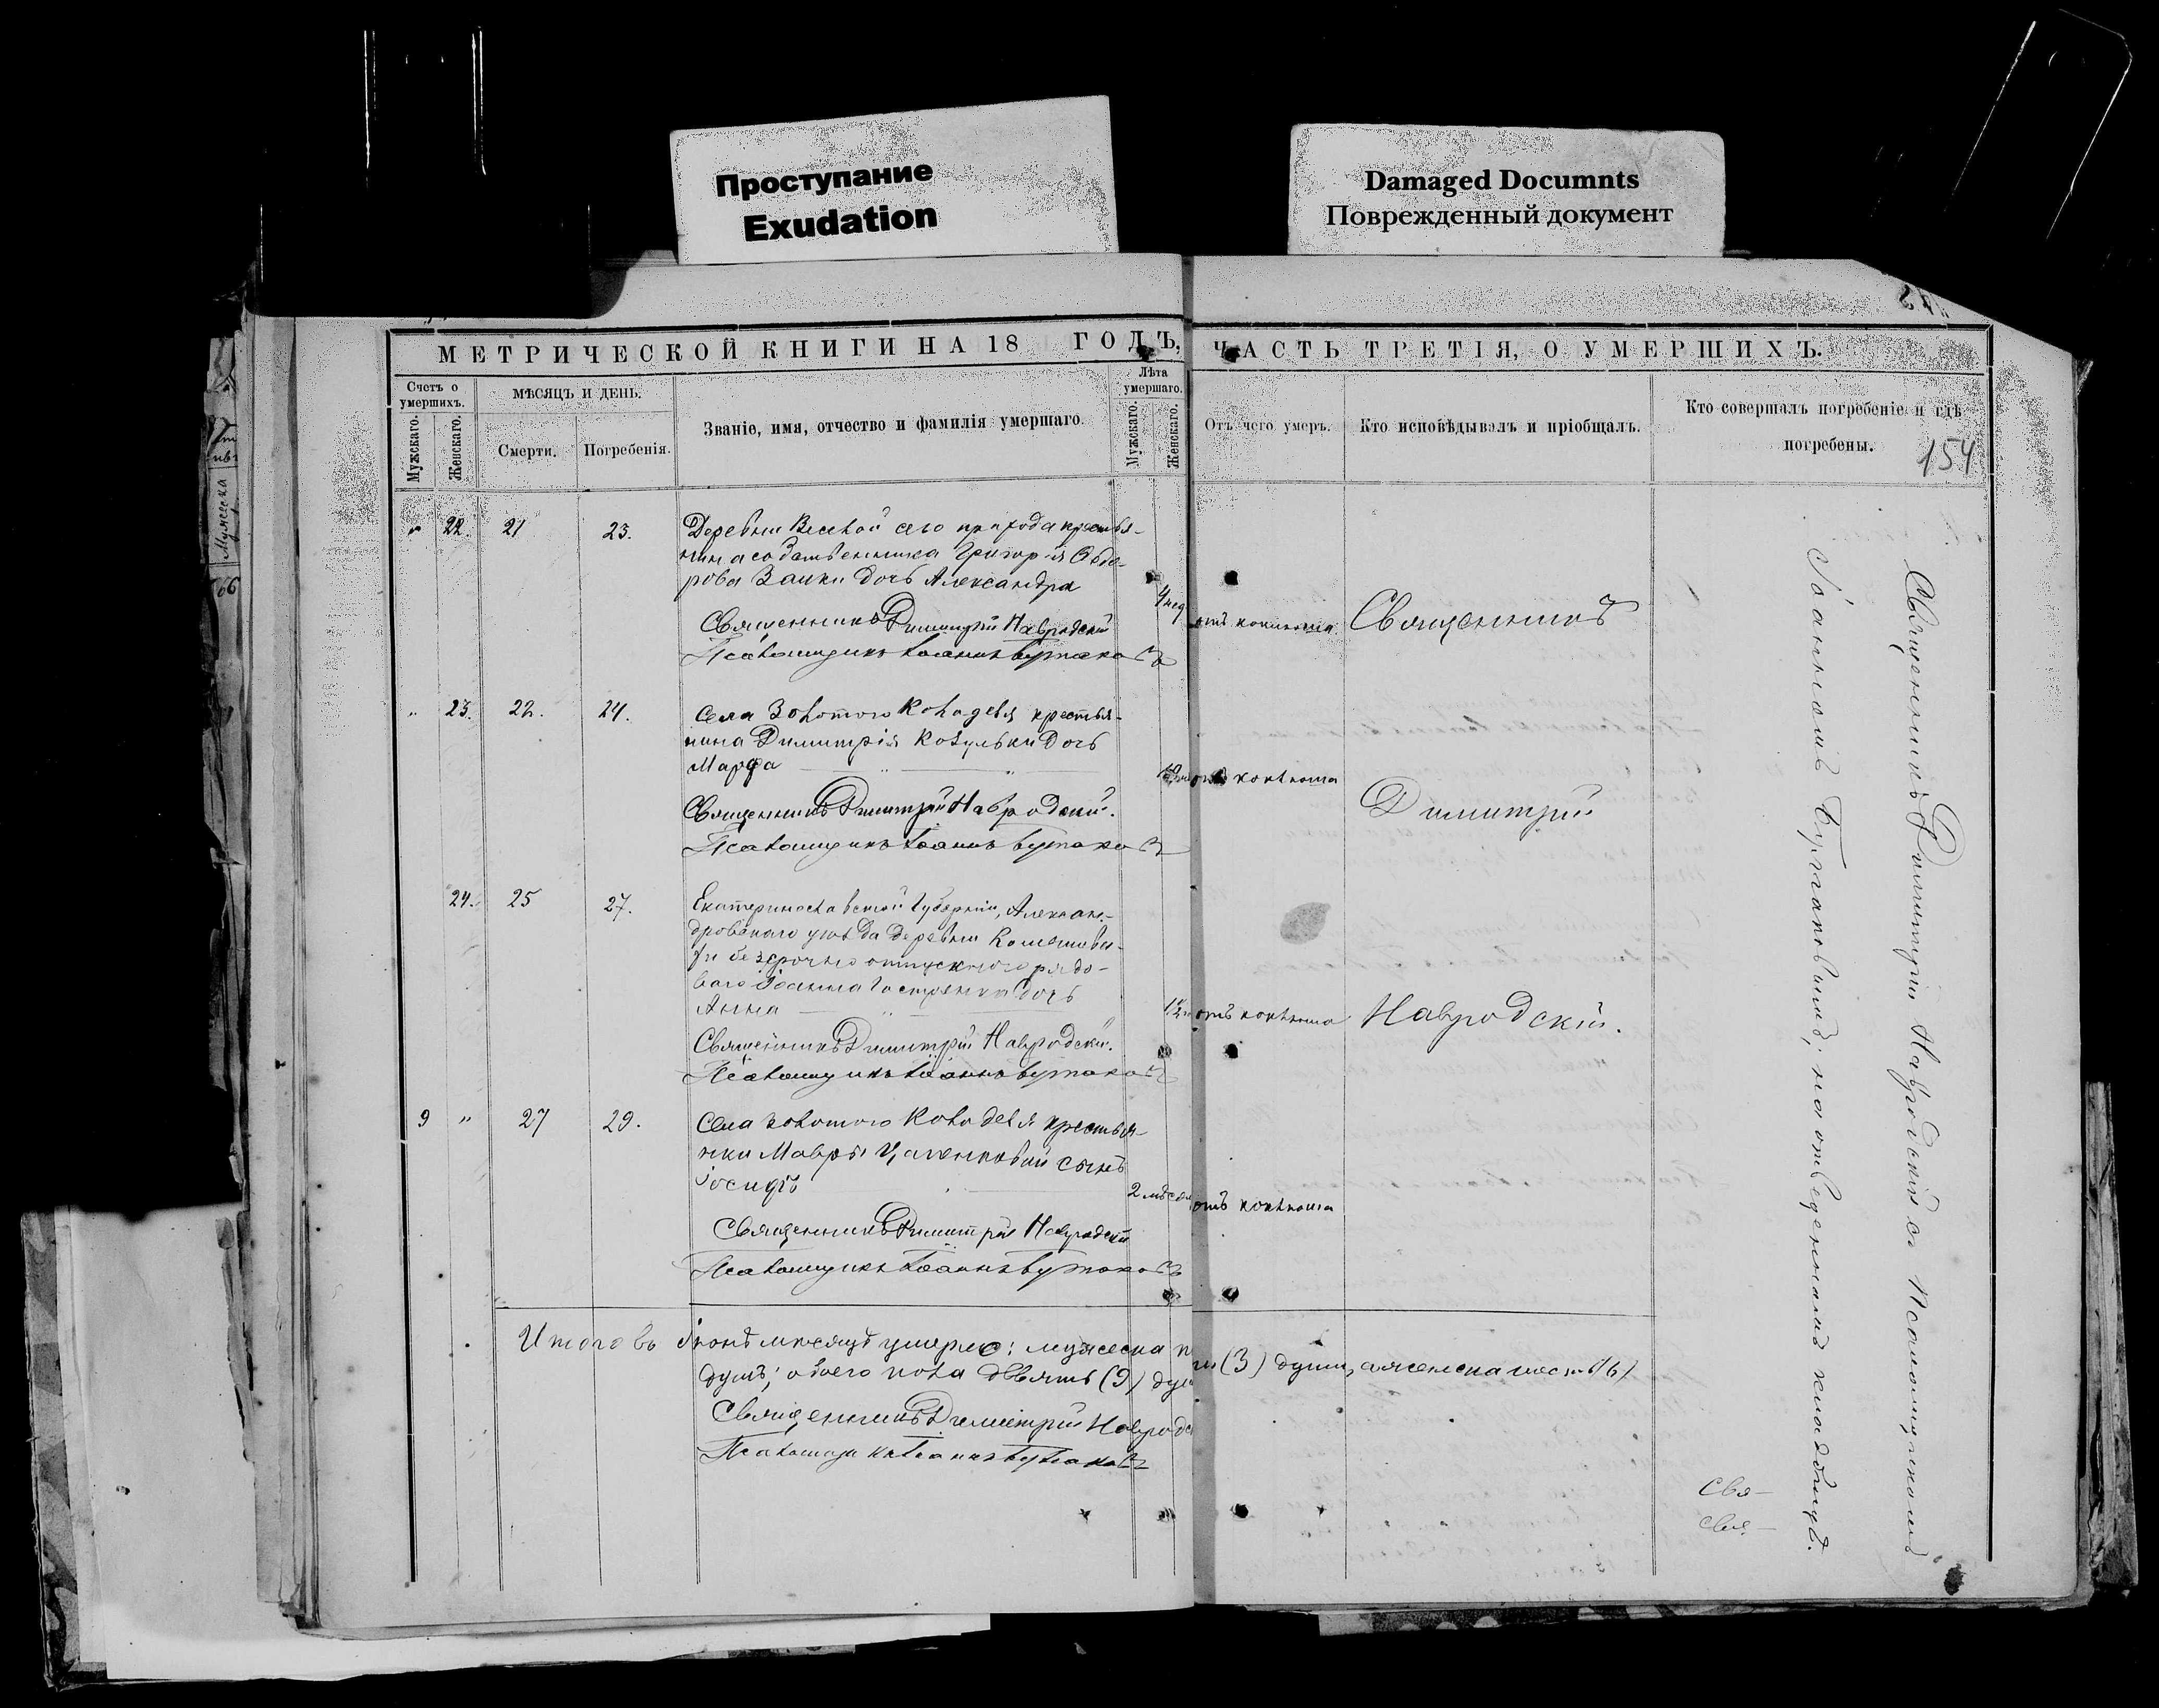 Проступание
Exudation
Damaged Documnts
Поврежденный документ
МЕТРИЧЕСКОЙ КНИГИ НА 18 ГОДЪ, ЧАСТЬ ТРЕТІЯ, О УМЕРШИХЪ.
154
Счетъ о умершихъ.
Мужскаго.
Женскаго.
МѢСЯЦЪ И ДЕНЬ.
Смерти.
Погребенія.
Званіе, имя, отчество и фамилія умершаго.
Лѣта умершаго.
Мужскаго.
Женскаго.
Отъ чего умеръ.
Кто исповѣдывалъ и пріобщалъ.
Кто совершалъ погребеніе и гдѣ
погребены.
22. 21 23. Деревни Веселой сего прихода крестья-
нина собственника Григорія Ѳедо-
рова Заики дочь Александра
4 нед отъ коклюша
Священникъ Димитрій Навродскій
Псаломщикъ Іоаннъ
23. 22. 24. Села Золотого Колодезя крестья-
нина Димитрія Козульки дочь
Марфа
отъ коклюша
Священникъ Димитрій Навродскій.
Псаломщикъ Іоаннъ
24. 25 27. Екатеринославской Губерніи, Алексан-
дровскаго уѣзда деревни
безсрочно отпускного рядо-
ваго Іоанна дочь
Анна
отъ коклюша
Священникъ Димитрій Навродскій.
Псаломщикъ Іоаннъ
9 " 27 29. Села Золотого Колодезя крестьян-
ки Мавры сынъ
Іосифъ
2 мѣсяц отъ коклюша
Священникъ Димитрій Навродскій
Псаломщикъ Іоаннъ
Итого въ Іюнѣ мѣсяцѣ умерло: мужеска три (3) души, а женска шесть (6)
душъ; обоего пола девять (9) душ
Священникъ Димитрій Навродс
Псаломщикъ Іоаннъ
Священникъ
Димитрій
Навродскій.
Священникъ Димитрій Навродскій съ Псаломщикомъ
Іоанномъ на отведенномъ кладбищѣ.
Свя-
Свя-